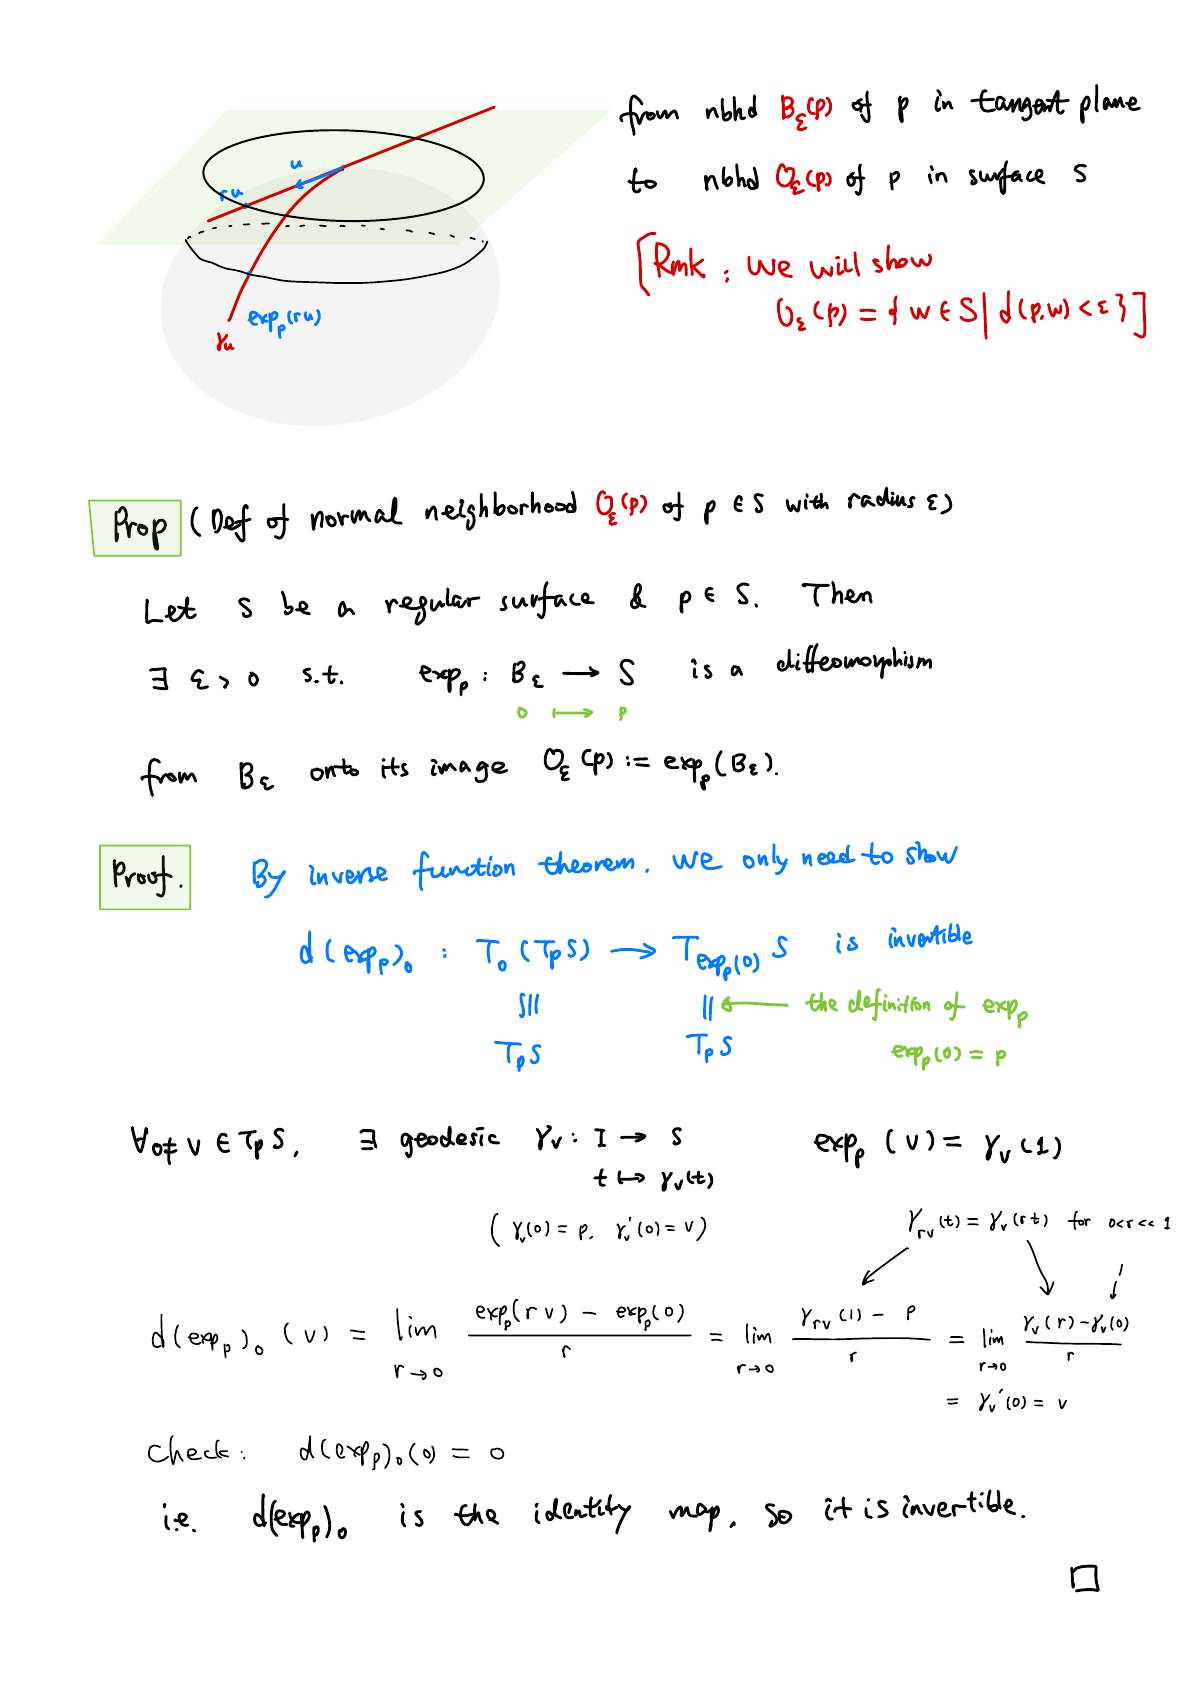 from nbhd B_ε(p) of p in tangent plane
to nbhd O_ε(p) of p in surface S
[Rmk: We will show
O_ε(p) = {w ∈ S | d(p,w) < ε}]
u
ru
exp_p(ru)
γ_u
Prop (Def of normal neighborhood O_ε(p) of p ∈ S with radius ε)
Let S be a regular surface & p ∈ S. Then
∃ ε > 0 s.t. exp_p : B_ε → S is a diffeomorphism
0 ↦ p
from B_ε onto its image O_ε(p) := exp_p(B_ε).
Proof. By inverse function theorem. We only need to show
d(exp_p)_0 : T_0(T_pS) → T_{exp_p(0)} S is invertible
≅ = ← the definition of exp_p
T_pS T_pS exp_p(0) = p
∀ 0≠v ∈ T_pS, ∃ geodesic γ_v : I → S exp_p(v) = γ_v(1)
t ↦ γ_v(t)
(γ_v(0) = p, γ_v'(0) = v) γ_{rv}(t) = γ_v(rt) for 0<r<<1
d(exp_p)_0(v) = lim_{r→0} (exp_p(rv) − exp_p(0))/r = lim_{r→0} (γ_{rv}(1) − p)/r = lim_{r→0} (γ_v(r) − γ_v(0))/r
= γ_v'(0) = v
Check: d(exp_p)_0(0) = 0
i.e. d(exp_p)_0 is the identity map, so it is invertible.
□